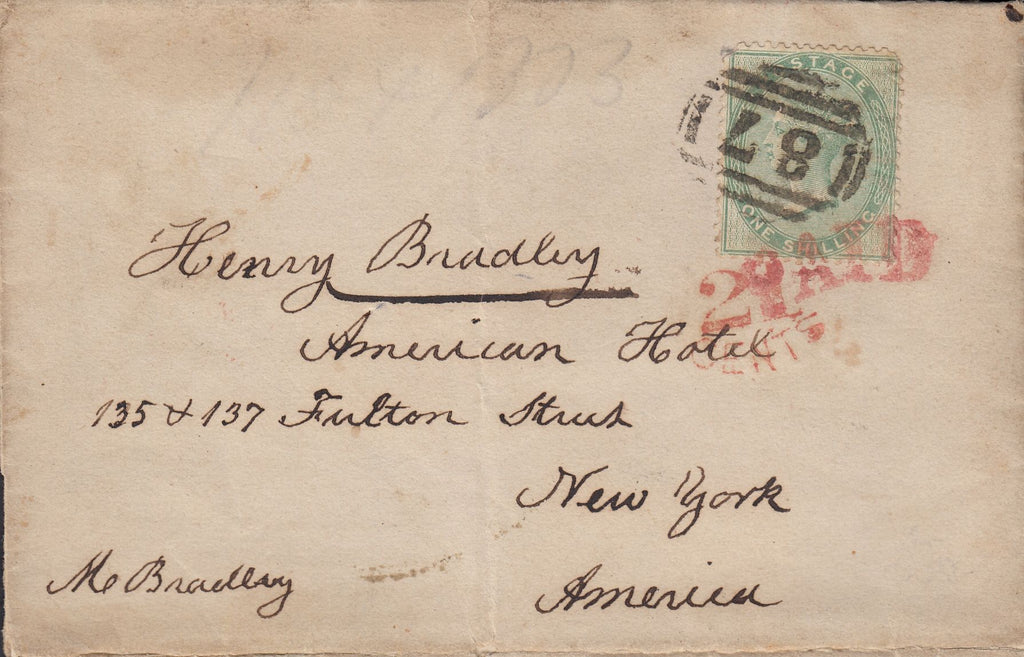 STAGE
87
ONE SHILLING
PAID
21
CENTS
Henry Bradley
American Hotel
135 & 137 Fulton Street
New York
America
Mc Bradley